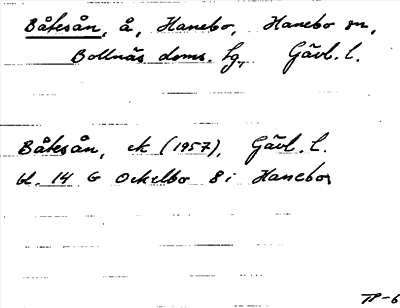 Båtesån, å, Hanebo, Hanebo sn,
Bollnäs doms. tg, Gävl. l.
Båtesån, ek (1957), Gävl. l.
bl. 14 G Ockelbo 8 i Hanebo